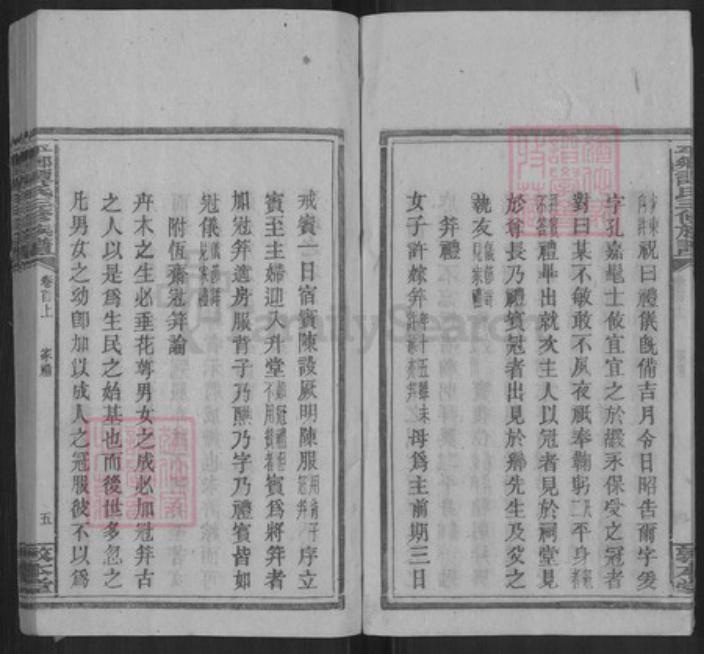 祝曰禮儀既備吉月令日昭告爾字爰
字孔嘉髦士攸宜宜之於嘏永保受之冠者
對曰某不敏敢不夙夜祇奉鞠躬平身
禮畢出就次主人以冠者見於祠堂見
於尊長乃禮賓冠者出見於鄉先生及父之
執友儀節詳見家禮
笄禮
女子許嫁笄年十五雖未許嫁亦笄母為主前期三日
戒賓一日宿賓陳設厥明陳服用背子冠笄序立
賓至主婦迎入升堂賓為將笄者
加冠笄適房服背子乃醮乃字乃禮賓皆如
冠儀儀節詳見家禮
附恆齋冠笄論
卉木之生必垂花萼男女之成必加冠笄古
之人以是為生民之始基也而後世多忽之
凡男女之幼卽加以成人之冠服彼不以為
卷首上
家禮
五
敦本堂
FamilySearch